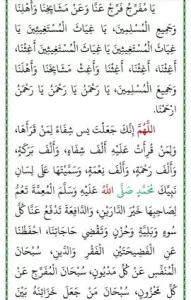 يَا مُفَرِّجُ فَرِّجْ عَنَّا وَعَنْ مَشَايِخِنَا وَأَهْلِنَا
وَجَمِيعِ الْمُسْلِمِينَ، يَا غِيَاثَ الْمُسْتَغِيثِينَ يَا
غِيَاثَ الْمُسْتَغِيثِينَ يَا غِيَاثَ الْمُسْتَغِيثِينَ أَغِثْنَا،
أَغِثْنَا، أَغِثْنَا، أَغِثْنَا وَأَغِثْ مَشَايِخَنَا وَأَهْلَنَا
وَجَمِيعَ الْمُسْلِمِينَ، يَا رَحْمٰنُ يَا رَحْمٰنُ يَا رَحْمٰنُ
ارْحَمْنَا.
اللّٰهُمَّ إِنَّكَ جَعَلْتَ يس شِفَاءً لِمَنْ قَرَأَهَا،
وَلِمَنْ قُرِأَتْ عَلَيْهِ أَلْفَ شِفَاءٍ، وَأَلْفَ بَرَكَةٍ،
وَأَلْفَ رَحْمَةٍ، وَأَلْفَ نِعْمَةٍ، وَسَمَّيْتَهَا عَلَى لِسَانِ
نَبِيِّكَ مُحَمَّدٍ صَلَّى اللهُ عَلَيْهِ وَسَلَّمَ الْمُعِمَّةَ تَعُمُّ
لِصَاحِبِهَا خَيْرَ الدَّارَيْنِ، وَالدَّافِعَةَ تَدْفَعُ عَنَّا كُلَّ
سُوءٍ وَبَلِيَّةٍ وَحُزْنٍ وَتَقْضِي حَاجَاتِنَا، احْفَظْنَا
عَنِ الْفَضِيحَتَيْنِ الْفَقْرِ وَالدَّيْنِ، سُبْحَانَ
الْمُنَفِّسِ عَنْ كُلِّ مَدْيُونٍ، سُبْحَانَ الْمُفَرِّجِ عَنْ
كُلِّ مَحْزُونٍ، سُبْحَانَ مَنْ جَعَلَ خَزَائِنَهُ بَيْنَ